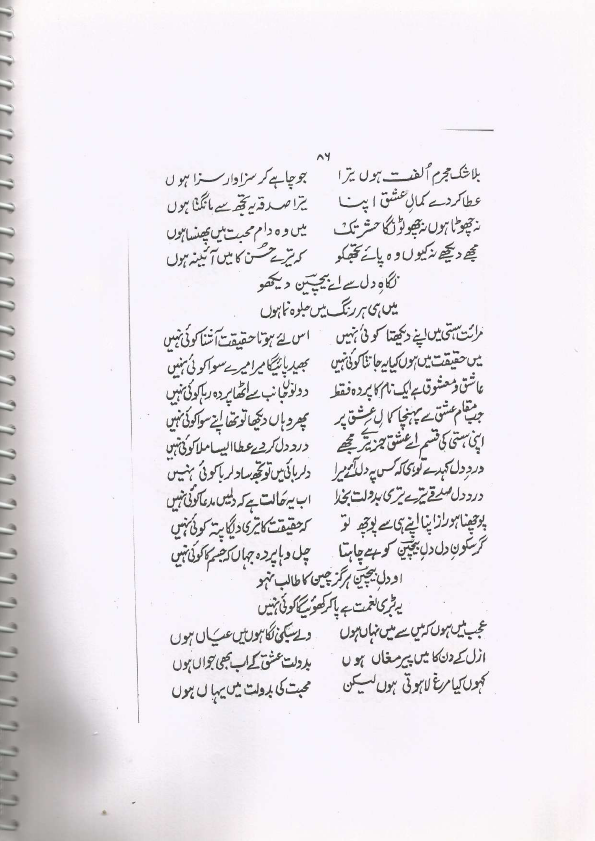 ۸۶
بلا شک مجرم اُلفت ہوں ترا جو چاہے کر سزاوار سزا ہوں
عطا کر دے کمالِ عشق اپنا ترا صدقہ یہ تجھ سے مانگتا ہوں
نہ چھوٹا ہوں نہ چھوٹوں گا حشر تک میں وہ دام محبت میں پھنسا ہوں
مجھے دیکھے نہ کیوں وہ پائے تجھکو کہ تیرے حُسن کا میں آئینہ ہوں
نگاہِ دل سے اے بیچین دیکھو
میں ہی ہر رنگ میں جلوہ نما ہوں
مرأت ہستی میں اپنے دیکھتا کوئی نہیں اس لئے ہوتا حقیقت آشنا کوئی نہیں
میں حقیقت میں ہوں کیا یہ جانتا کوئی نہیں بھید پائیگا میرا میرے سوا کوئی نہیں
عاشق و معشوق ہے ایک نام کا پردہ فقط دونوں جانب سے اٹھا پردہ رہا کوئی نہیں
جب مقام عشق پہ پہنچا کمالِ عشق پر پھر وہاں دیکھا تو تھا اپنے سوا کوئی نہیں
اپنی ہستی کی قسم اے عشق بجز تیرے مجھے درد دل کردے عطا ایسا ملا کوئی نہیں
درد دل کہدے تو ہی کہ کس پہ دل آئے میرا دلربائی میں تو تجھ سا دلربا کوئی نہیں
درد دل صدقے تیرے تیری بدولت بخدا اب یہ حالت ہے کہ دلمیں مدعا کوئی نہیں
پوچھنا ہو راز اپنا اپنے ہی سے پوچھ تو کہ حقیقت کا تری دیگا پتہ کوئی نہیں
گر سکونِ دل دلِ بیچین کو ہے چاہتا چل وہا پردہ جہاں کہ جسم کا کوئی نہیں
او دل بیچین ہرگز چین کا طالب نہو
یہ بڑی نعمت ہے پا کر کھوئیگا کوئی نہیں
عجب میں ہوں کہ میں سے میں نہاں ہوں ولے سیکنی لگا ہوں میں عیاں ہوں
ازل کے دن کا میں پیر مغاں ہوں بدولت عشق کے اب بھی جواں ہوں
کہوں کیا مرغ لاہوتی ہوں لیکن محبت کی بدولت میں یہاں ہوں